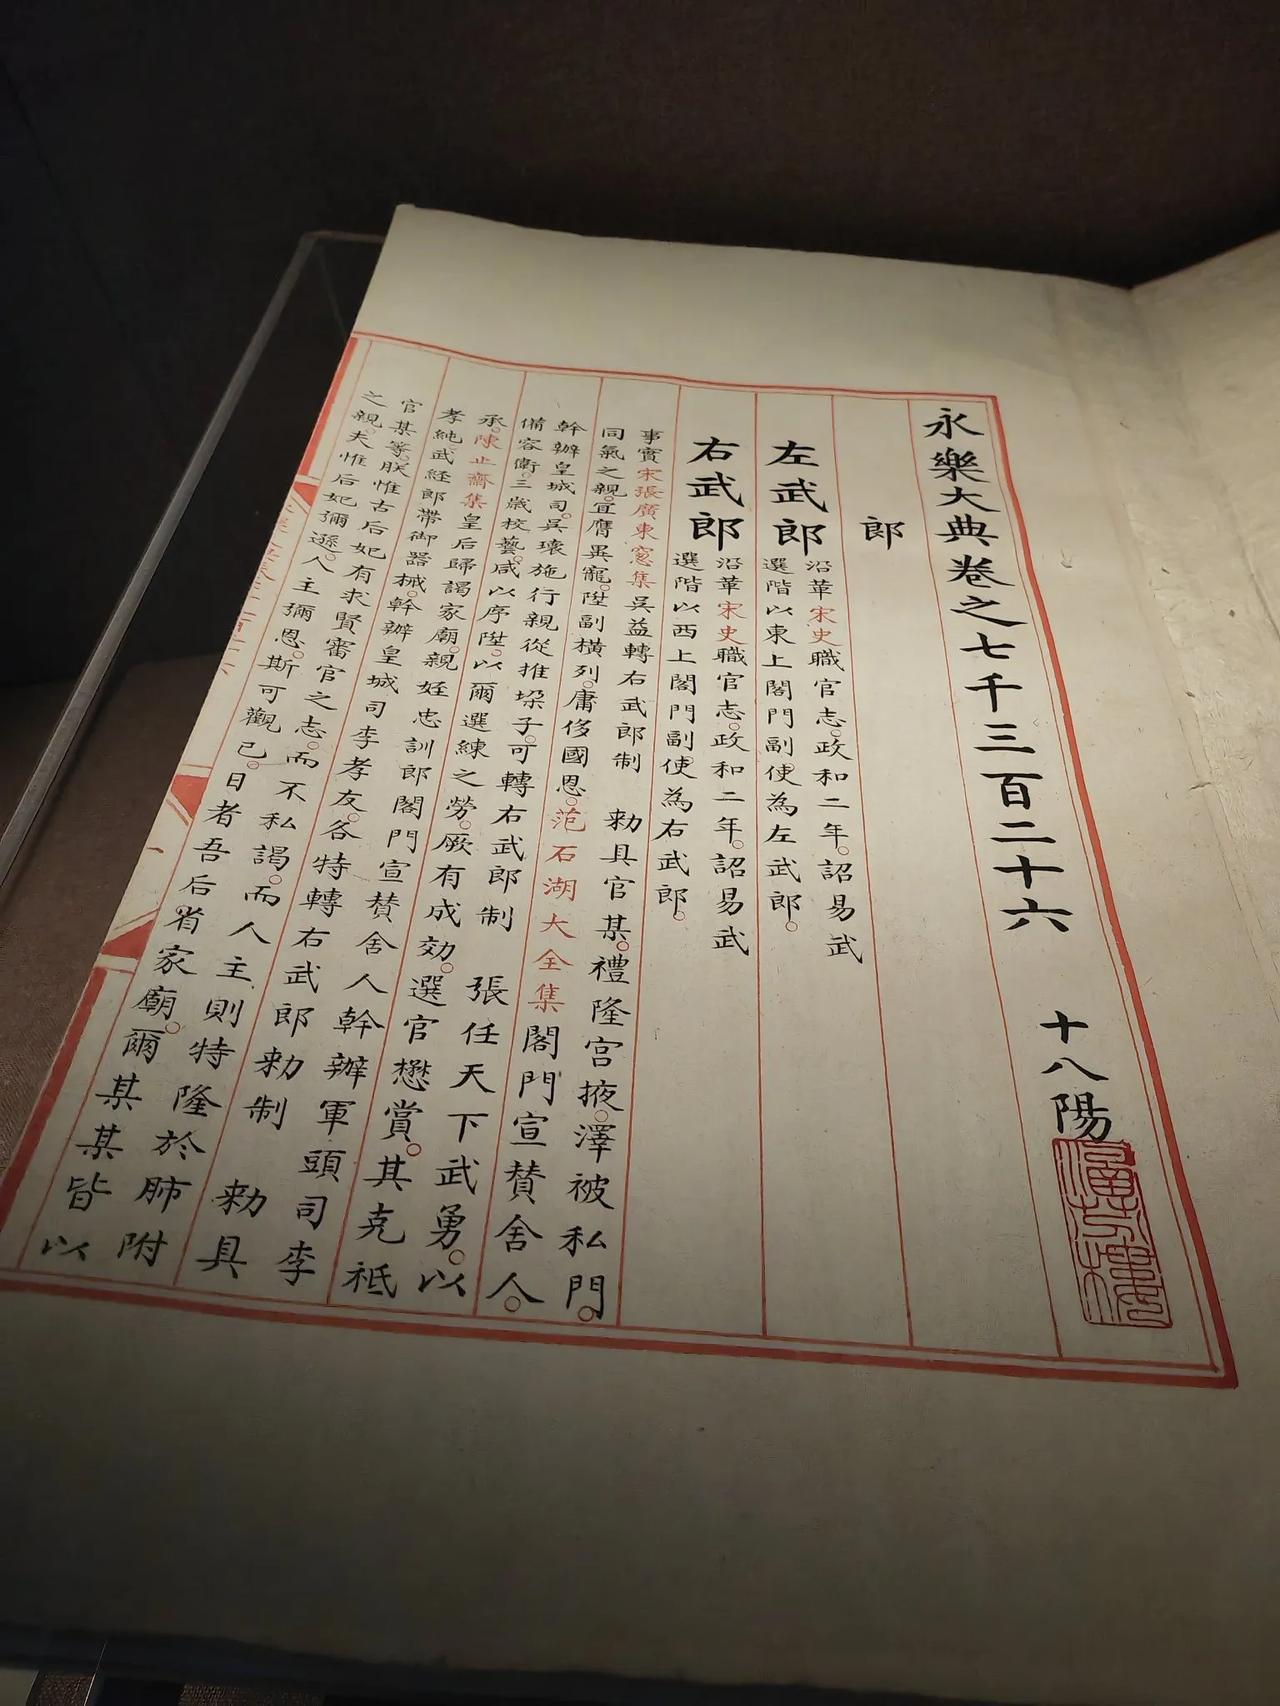 永樂大典卷之七千三百二十六 十八陽
郎
左武郎 沿革宋史職官志。政和二年。詔易武
選階以東上閤門副使為左武郎。
右武郎 沿革宋史職官志。政和二年。詔易武
選階以西上閤門副使為右武郎。
事實宋張廣東窻集吳益轉右武郎制 勑具官某。禮隆宮掖。澤被私門。
同氣之親。宜膺異寵。陞副橫列。庸侈國恩。范石湖大全集閤門宣贊舍人。
幹辦皇城司。吳瓌施行親從推垜子。可轉右武郎制 張任天下武勇。以
備容衛。三歲校藝。咸以序陞。以爾選練之勞。厥有成効。選官懋賞。其克祗
承。陳止齋集皇后歸謁家廟。親姪忠訓郎閤門宣贊舍人幹辦軍頭司李
孝純武経郎帶御器械。幹辦皇城司李孝友。各特轉右武郎勑制 勑具
官某等。朕惟古后妃有求賢審官之志。而不私謁。而人主則特隆於肺附
之親。夫惟后妃彌遜。人主彌恩。斯可觀已。日者吾后省家廟。爾某某皆以